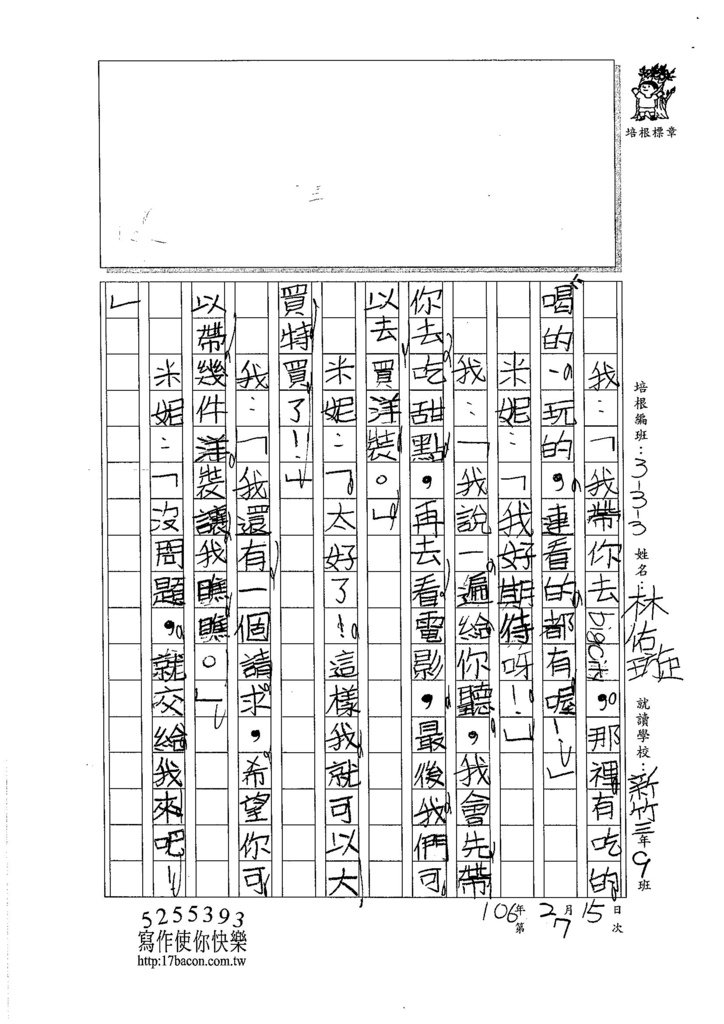 培根標章
培根編班：3-3-3 姓名：林佑璇 就讀學校：新竹三年9班
106年2月15日
第7次
我：「我帶你去bigcity，那裡有吃的、
喝的、玩的，連看的都有喔！」
米妮：「我好期待呀！」
我：「我說一遍給你聽，我會先帶
你去吃甜點，再去看電影，最後我們可
以去買洋裝。」
米妮：「太好了！這樣我就可以大
買特買了！」
我：「我還有一個請求，希望你可
以帶幾件洋裝讓我瞧瞧。」
米妮：「沒問題，就交給我來吧！
」
5255393
寫作使你快樂
http:17bacon.com.tw